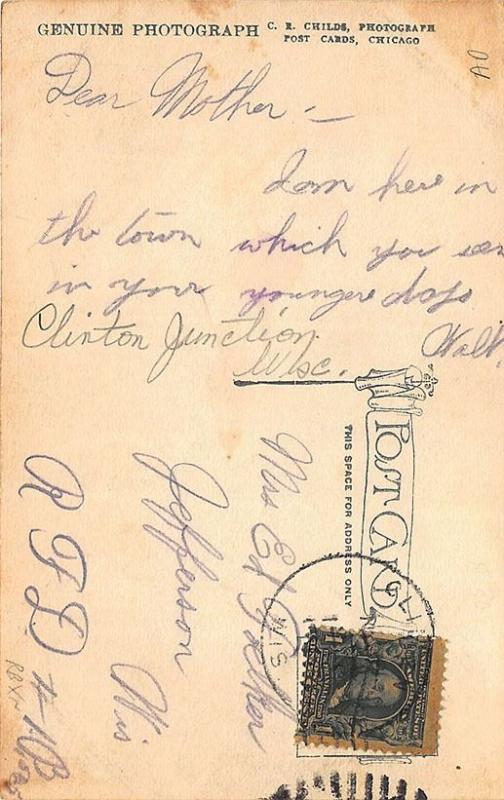 GENUINE PHOTOGRAPH C. R. CHILDS, PHOTOGRAPH
POST CARDS, CHICAGO
AO
Dear Mother —
I am here in
the town which you
in your younger days
Walt
Clinton Junction
Wisc.
POST CARD
THIS SPACE FOR ADDRESS ONLY
Mrs Ed
Jefferson
Wis
R F D
WIS